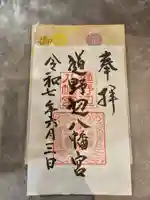 奉拝
道野辺八幡宮
令和七年六月三日